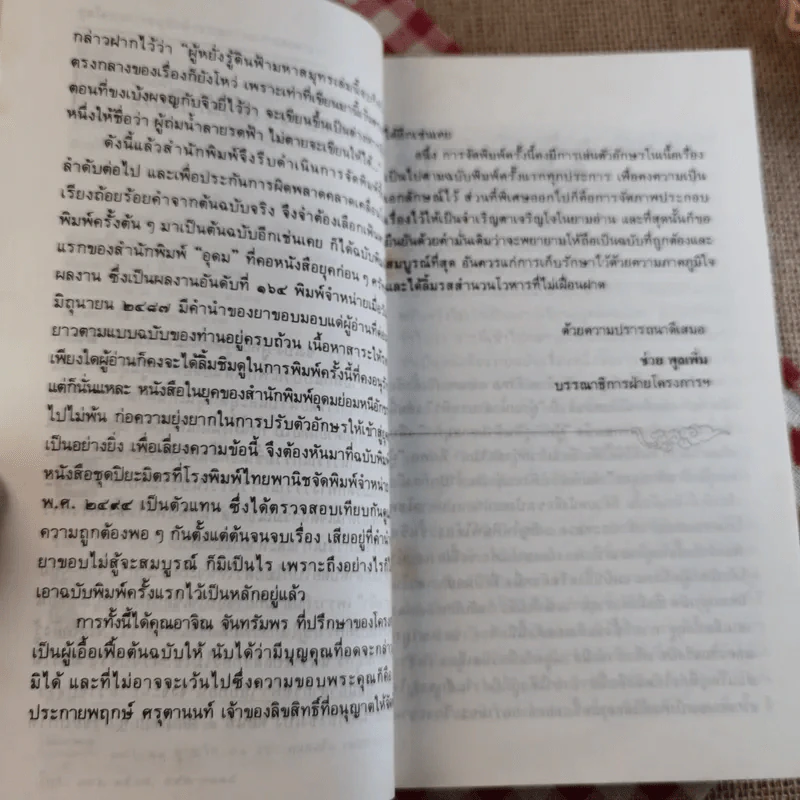 กล่าวฝากไว้ว่า "ผู้หยั่งรู้ดินฟ้ามหาสมุทรเล่มนี้
ตรงกลางของเรื่องก็ยังโหว่ เพราะเท่าที่เขียนมานี้
ตอนที่ขงเบ้งผจญกับจิวยี่ไว้ว่า จะเขียนขึ้นเป็น
หนึ่งให้ชื่อว่า ผู้ถ่มน้ำลายรดฟ้า ไม่ตายจะเขียนให้ได้
ดังนี้แล้วสำนักพิมพ์จึงรีบดำเนินการจัดพิมพ์
ลำดับต่อไป และเพื่อประกันการผิดพลาดคลาดเคลื่อน
เรียงถ้อยร้อยคำจากต้นฉบับจริง จึงจำต้องเลือก
พิมพ์ครั้งต้น ๆ มาเป็นต้นฉบับอีกเช่นเคย ก็ได้ฉบับ
แรกของสำนักพิมพ์ "อุดม" ที่คอหนังสือยุคก่อน ๆ
ผลงาน ซึ่งเป็นผลงานอันดับที่ ๑๖๔ พิมพ์จำหน่ายเมื่อ
มิถุนายน ๒๔๘๗ มีคำนำของยาขอบมอบแด่ผู้อ่านที่
ยาวตามแบบฉบับของท่านอยู่ครบถ้วน เนื้อหาสาระ
เพียงใดผู้อ่านก็คงจะได้ลิ้มชิมดูในการพิมพ์ครั้งนี้ที่คง
แต่ก็นั่นแหละ หนังสือในยุคของสำนักพิมพ์อุดมย่อมหนี
ไปไม่พ้น ก่อความยุ่งยากในการปรับตัวอักษรให้เข้าสู่
เป็นอย่างยิ่ง เพื่อเลี่ยงความข้อนี้ จึงต้องหันมาที่ฉบับพิมพ์
หนังสือชุดปิยะมิตรที่โรงพิมพ์ไทยพานิชจัดพิมพ์จำหน่าย
พ.ศ. ๒๔๙๔ เป็นตัวแทน ซึ่งได้ตรวจสอบเทียบกันดู
ความถูกต้องพอ ๆ กันตั้งแต่ต้นจนจบเรื่อง เสียอยู่ที่คำนำ
ยาขอบไม่สู้จะสมบูรณ์ ก็มิเป็นไร เพราะถึงอย่างไรก็
เอาฉบับพิมพ์ครั้งแรกไว้เป็นหลักอยู่แล้ว
การทั้งนี้ได้คุณอาจิณ จันทรัมพร ที่ปรึกษาของ
เป็นผู้เอื้อเฟื้อต้นฉบับให้ นับได้ว่ามีบุญคุณที่อดจะกล่าว
มิได้ และที่ไม่อาจจะเว้นไปซึ่งความขอบพระคุณก็คือ
ประกายพฤกษ์ ศรุตานนท์ เจ้าของลิขสิทธิ์ที่อนุญาตให้จัด
ได้อีกเช่นเคย
อนึ่ง การจัดพิมพ์ครั้งนี้คงมีการเล่นตัวอักษรในเนื้อเรื่อง
เป็นไปตามฉบับพิมพ์ครั้งแรกทุกประการ เพื่อคงความเป็น
เอกลักษณ์ไว้ ส่วนที่พิเศษออกไปก็คือการจัดภาพประกอบ
เรื่องไว้ให้เป็นจำเริญตาเจริญใจในยามอ่าน และที่สุดนั้นก็ขอ
ยืนยันด้วยคำมั่นเดิมว่าจะพยายามให้ถือเป็นฉบับที่ถูกต้องและ
สมบูรณ์ที่สุด อันควรแก่การเก็บรักษาไว้ด้วยความภาคภูมิใจ
และได้ลิ้มรสสำนวนโวหารที่ไม่เฝื่อนฝาด
ด้วยความปรารถนาดีเสมอ
ช่วย พูลเพิ่ม
บรรณาธิการฝ่ายโครงการฯ